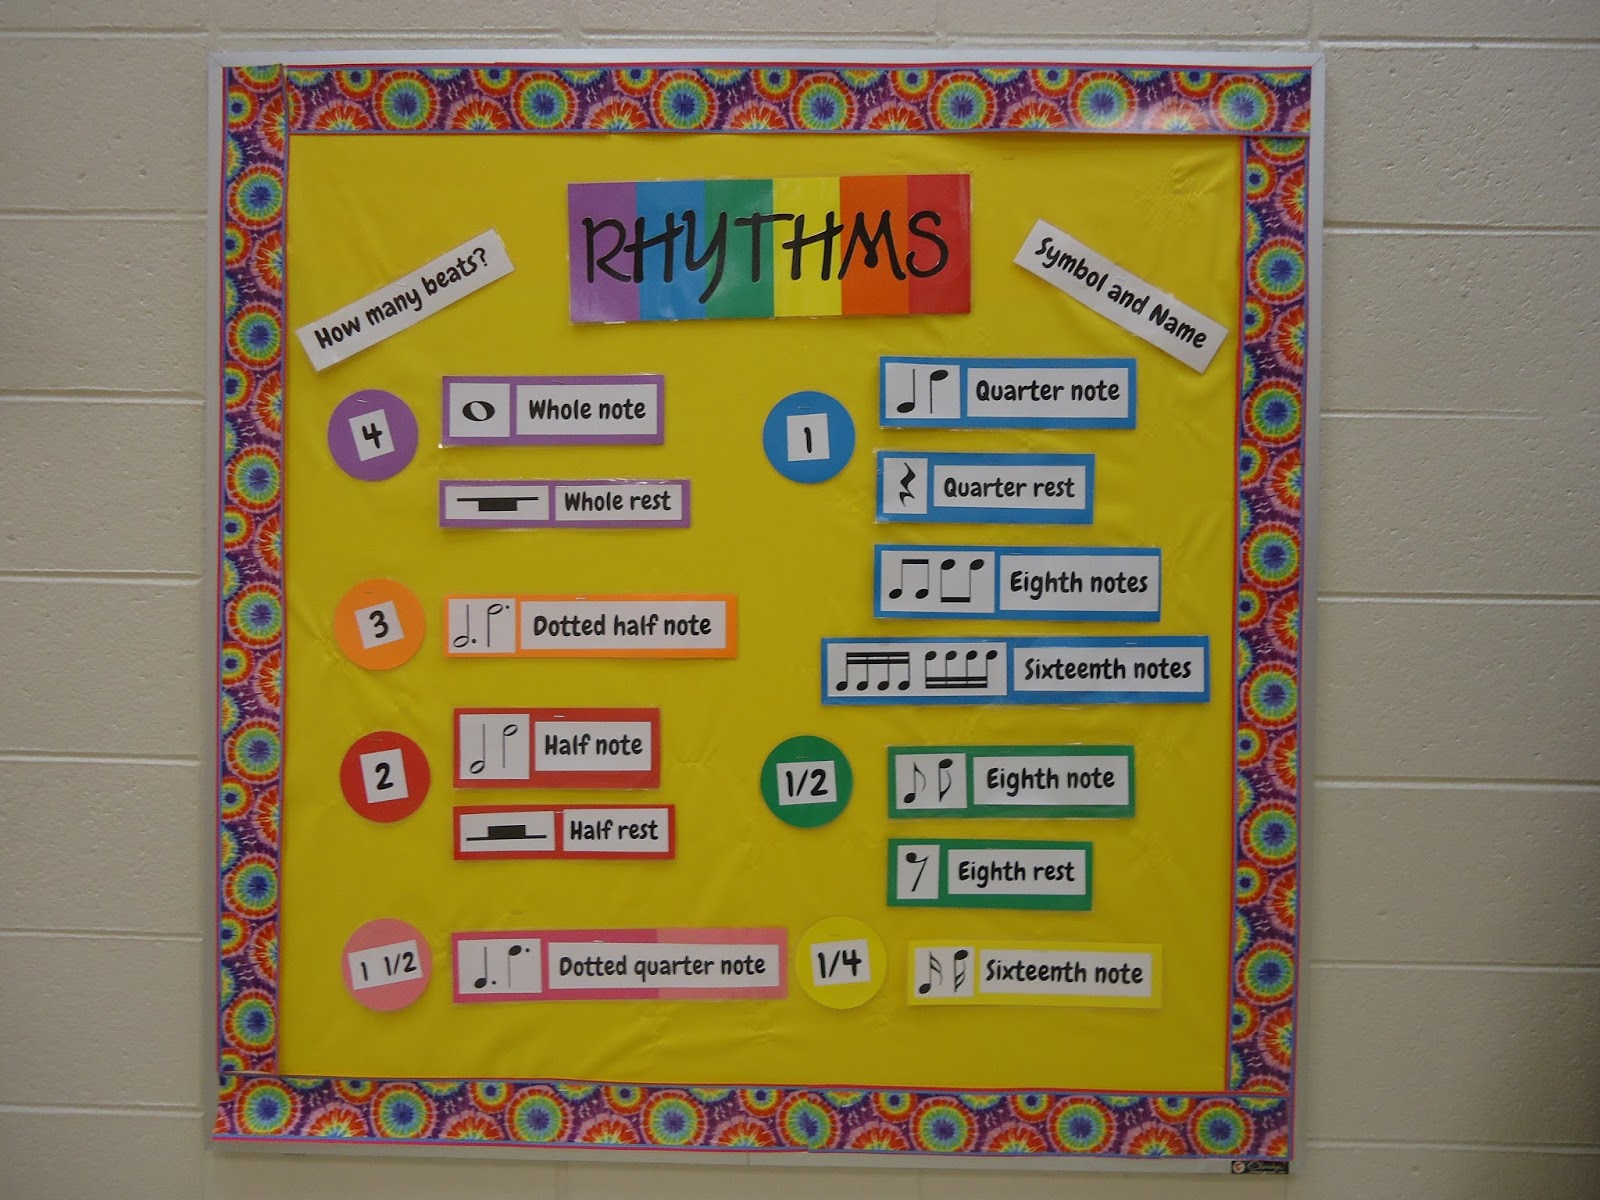 RHYTHMS
How many beats?
Symbol and Name
4
Whole note
Whole rest
3
Dotted half note
2
Half note
Half rest
1 1/2
Dotted quarter note
1
Quarter note
Quarter rest
Eighth notes
Sixteenth notes
1/2
Eighth note
Eighth rest
1/4
Sixteenth note